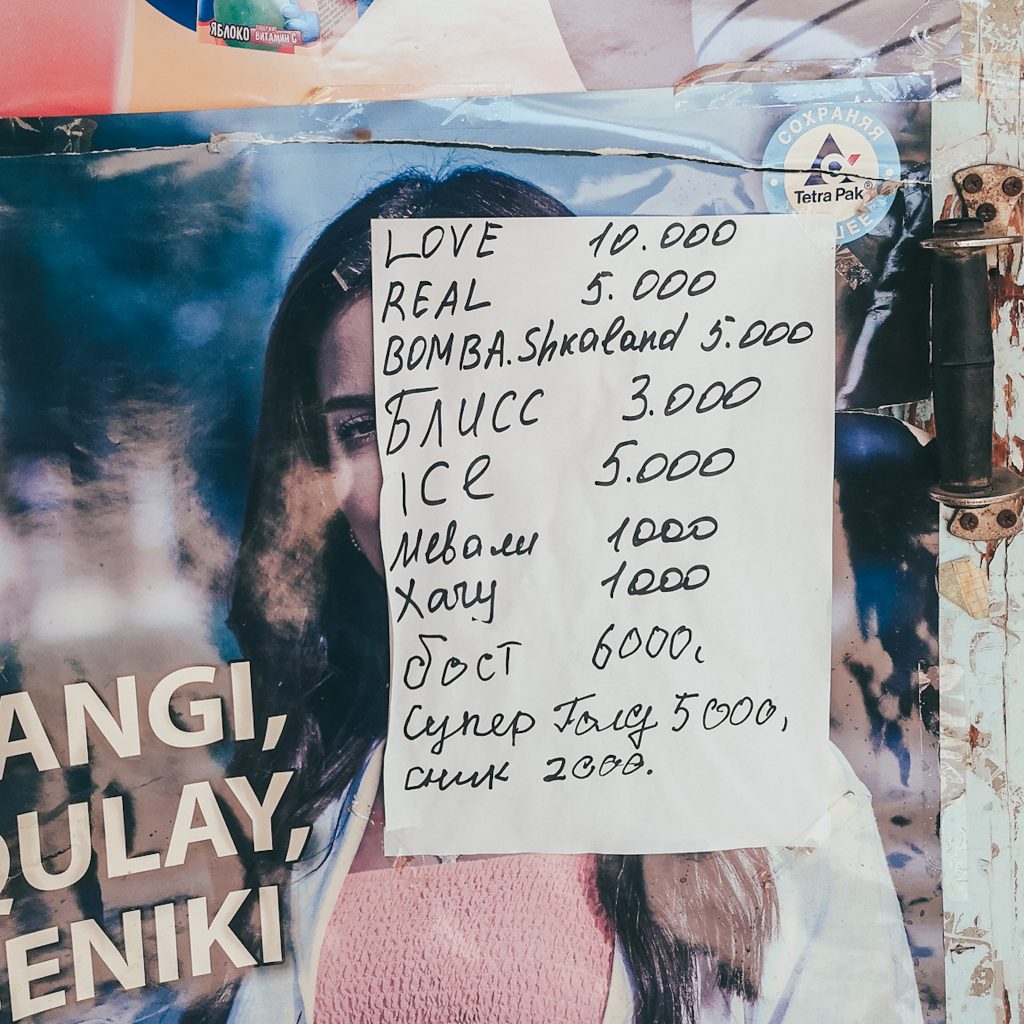 ЯБЛОКО
ВИТАМИН С
СОХРАНЯЯ
Tetra Pak®
LOVE 10.000
REAL 5.000
BOMBA.Shkaland 5.000
БЛИСС 3.000
ICe 5.000
Мевали 1000
Хачу 1000
бост 6000,
Супер Голд 5000,
сник 2000.
ANGI,
ULAY,
ENIKI